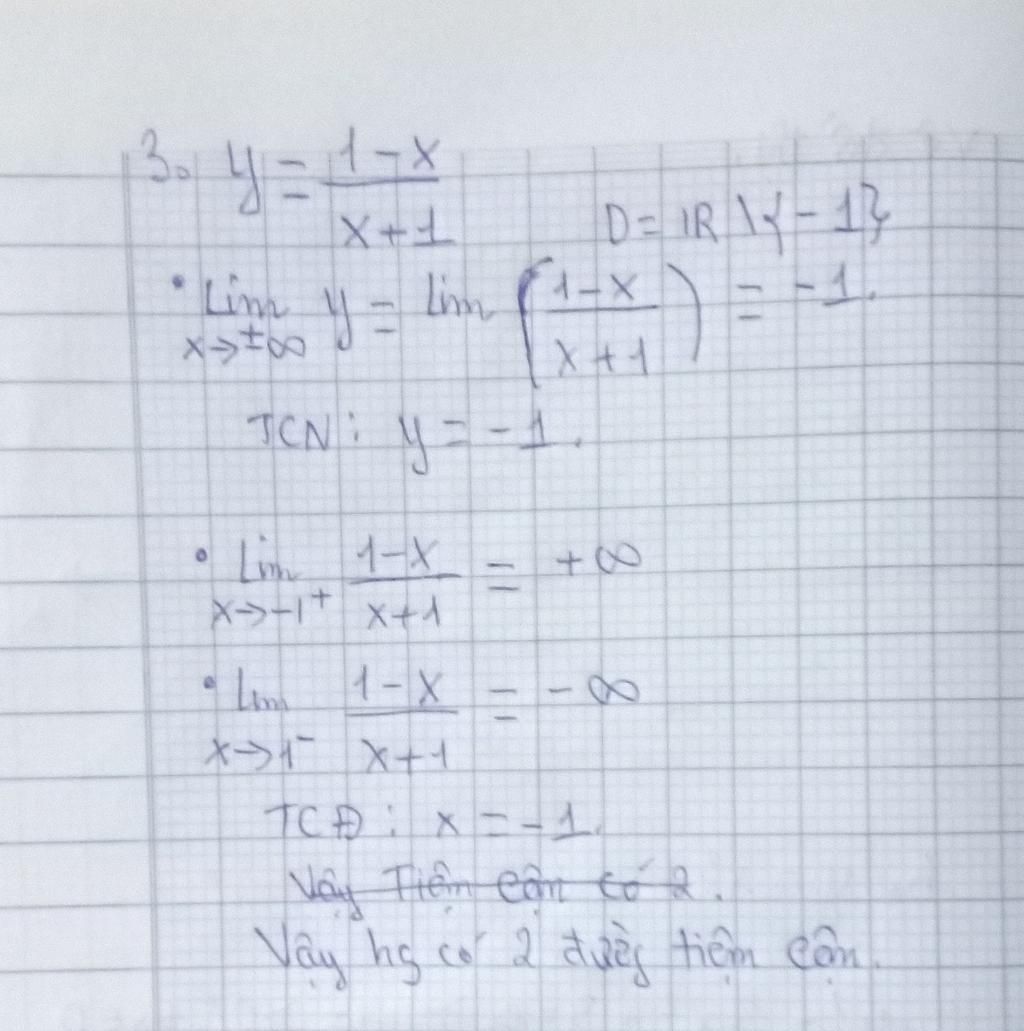 3. y = (1-x)/(x+1)
D = ℝ \ {-1}
• Lim x→±∞ y = lim ((1-x)/(x+1)) = -1.
TCN: y = -1.
• Lim x→-1⁺ (1-x)/(x+1) = +∞
• Lim x→1⁻ (1-x)/(x+1) = -∞
TCĐ: x = -1.
Vậy Tiệm cận có 2.
Vậy hs có 2 đường tiệm cận.